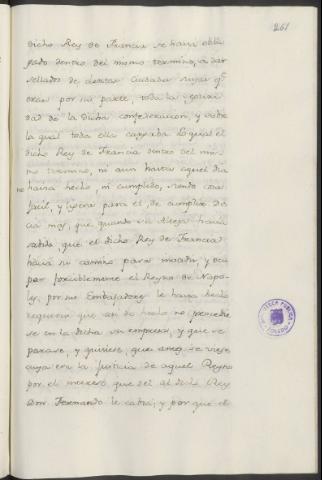 261
dicho Rey de Francia se havia obli
gado dentro del mismo termino, a dar
sellados de ciertas Ciudades suyas qe
eran por su parte, toda la seguri
dad de la dicha confederacion, y sobre
la qual toda ella cargaba Lo qual el
dicho Rey de Francia dentro del mis
mo termino, ni aun hasta aquel dia
no havia hecho, ni cumplido, siendo cosa
facil, y ligera para el de cumplir De
cia mas, que quando su Alteza havia
sabido, que el dicho Rey de Francia
hacia su camino para invadir, y ocu
par forciblemente el Reyno de Napo
les, por sus Embajadores le havia hecho
requerir que asi de hecho no procedie
se en la dicha su empresa, y que se
parase, y quisiese, que antes se viese
cuya era la Justicia de aquel Reyno
por el interese, que del al dicho Rey
Don Fernando le cabia; y por que el